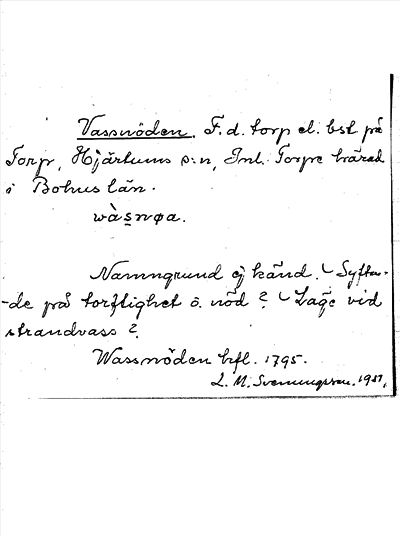 Vassnöden. F.d. torp el. bst på
Torp, Hjärtums s:n, Inl. Torpe härad
i Bohus län.
wàs̱nøa.
Namngrund ej känd. Syfta-
-de på torftighet o. nöd? Läge vid
strandvass?
Wassnöden hfl. 1795.
L. M. Svenungsson.